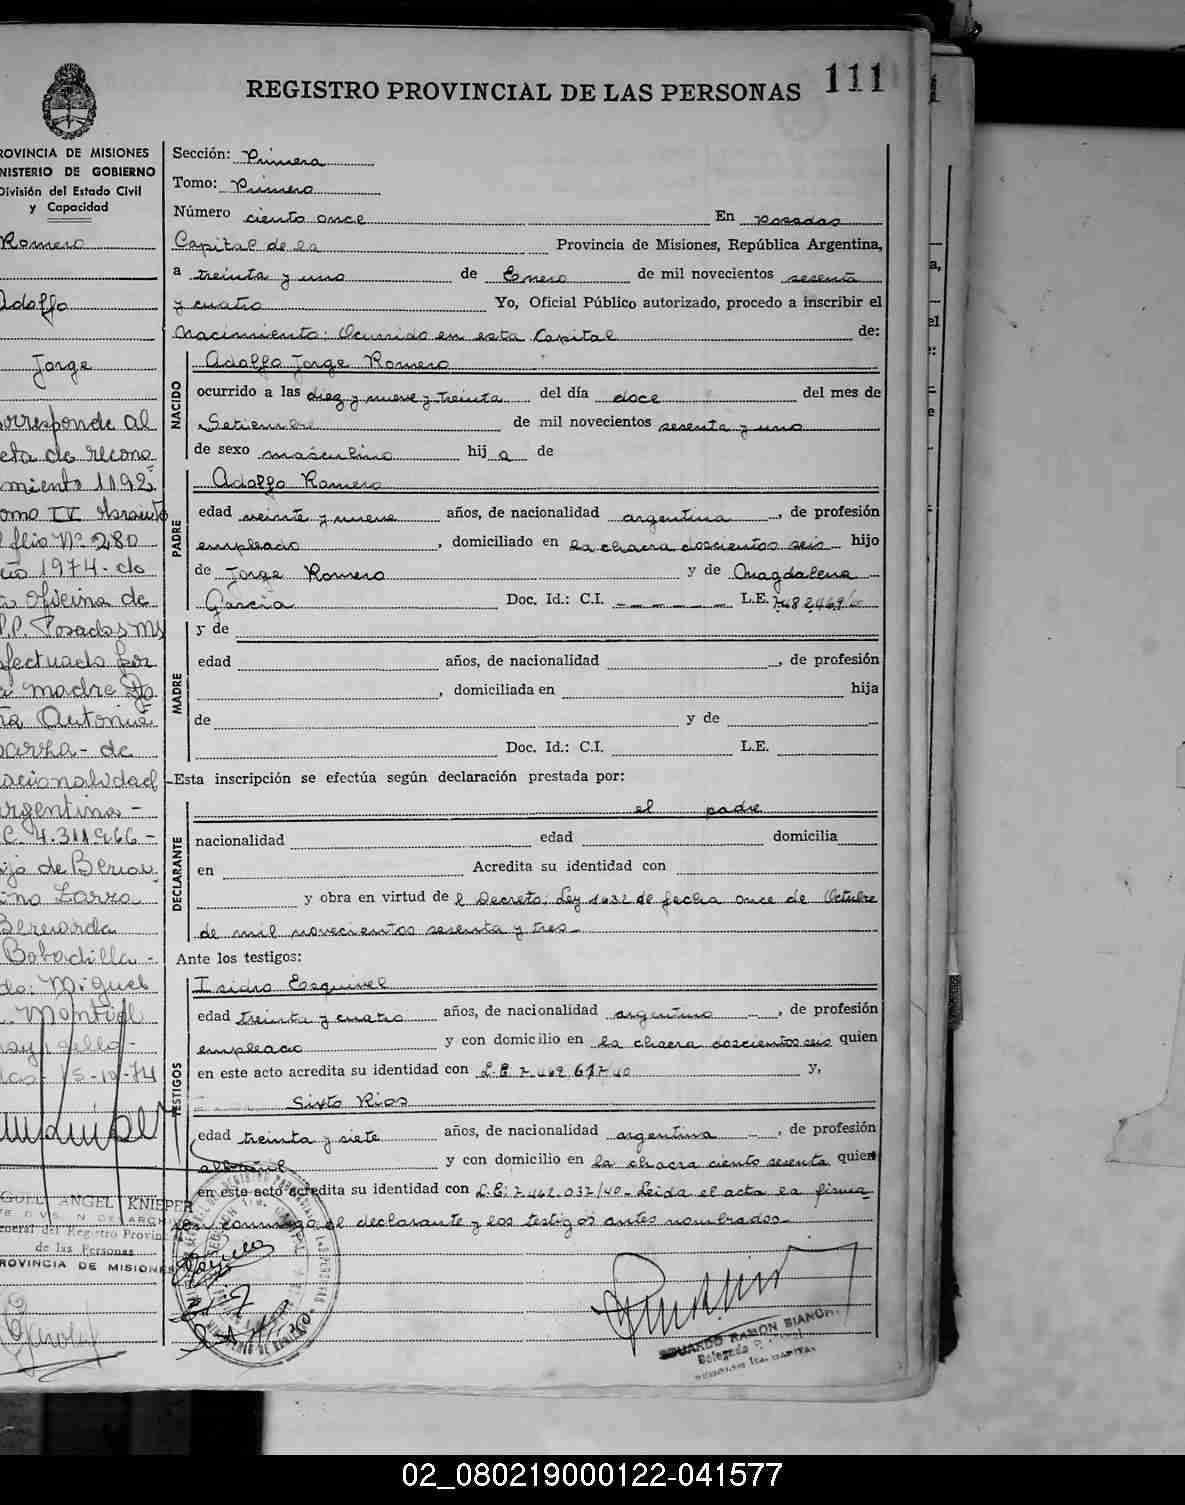 REGISTRO PROVINCIAL DE LAS PERSONAS
111
ROVINCIA DE MISIONES
NISTERIO DE GOBIERNO
División del Estado Civil
y Capacidad
Romero
Adolfo
Jorge
orresponde al
cta de recono
miento 1192
omo IV
folio Nº 280
año 1974 - de
a oficina de
P.P. Posadas Ms
fectuado por
a madre Do
ña Antonia
arza - de
acionalidad
rgentina -
C. 4.311.966 -
ija de Berna
ino Zarza
Bernarda
Bobadilla -
do: Miguel
Montiel
15-10-74
GUEL ANGEL KNIEPER
General del Registro Provin
de las Personas
ROVINCIA DE MISIONES
Sección: Primera
Tomo: Primero
Número ciento once En Posadas
Capital de la Provincia de Misiones, República Argentina,
a treinta y uno de Enero de mil novecientos sesenta
y cuatro Yo, Oficial Público autorizado, procedo a inscribir el
Nacimiento: Ocurrido en esta Capital de:
NACIDO
Adolfo Jorge Romero
ocurrido a las diez y nueve y treinta del día doce del mes de
Setiembre de mil novecientos sesenta y uno
de sexo masculino hij a de
PADRE
Adolfo Romero
edad veinte y nueve años, de nacionalidad argentina, de profesión
empleado, domiciliado en la chacra doscientos seis hijo
de Jorge Romero y de Magdalena
Garcia Doc. Id.: C.I. L.E.
MADRE
y de
edad años, de nacionalidad, de profesión
, domiciliada en hija
de y de
Doc. Id.: C.I. L.E.
Esta inscripción se efectúa según declaración prestada por:
DECLARANTE
el padre
nacionalidad edad domicilia
en Acredita su identidad con
y obra en virtud de l Decreto: Ley 1632 de fecha once de Octubre
de mil novecientos sesenta y tres -
Ante los testigos:
TESTIGOS
Isidro Esquivel
edad treinta y cuatro años, de nacionalidad argentino, de profesión
empleado y con domicilio en la chacra doscientos seis quien
en este acto acredita su identidad con L.E. y,
Sixto Rios
edad treinta y siete años, de nacionalidad argentina, de profesión
albañil y con domicilio en la chacra ciento sesenta quien
en este acto acredita su identidad con L.E. 7.462.037/40 - Leida el acta la firma
con conmigo el declarante y los testigos antes nombrados -
EDUARDO RAMON BIANCHI
02_080219000122-041577